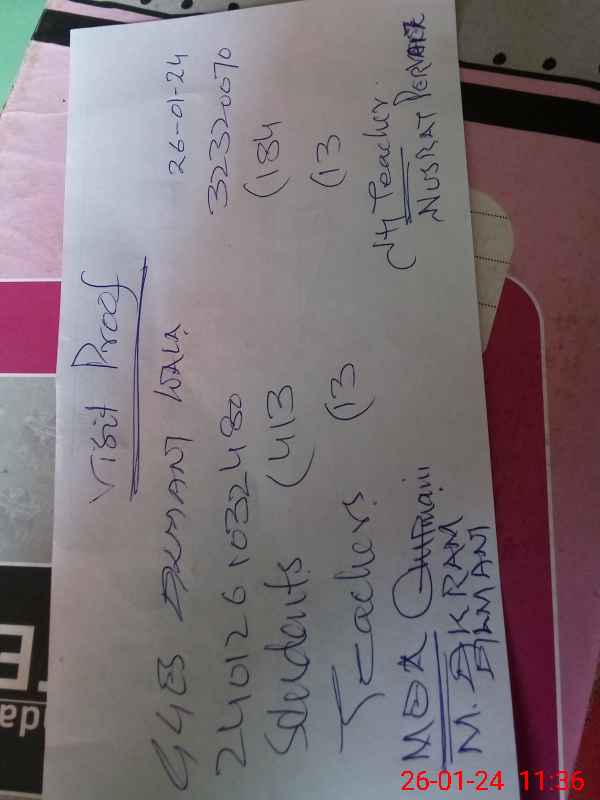 Visit Proof
26-01-24
GGES ARMANI WALA
2401261032480
32320070
Students (413
(184
Teachers (13
(13
MEA Gurmani
M. AKRAM
ARMANI
Teacher
NUSRAT PERVAIR
26-01-24 11:36